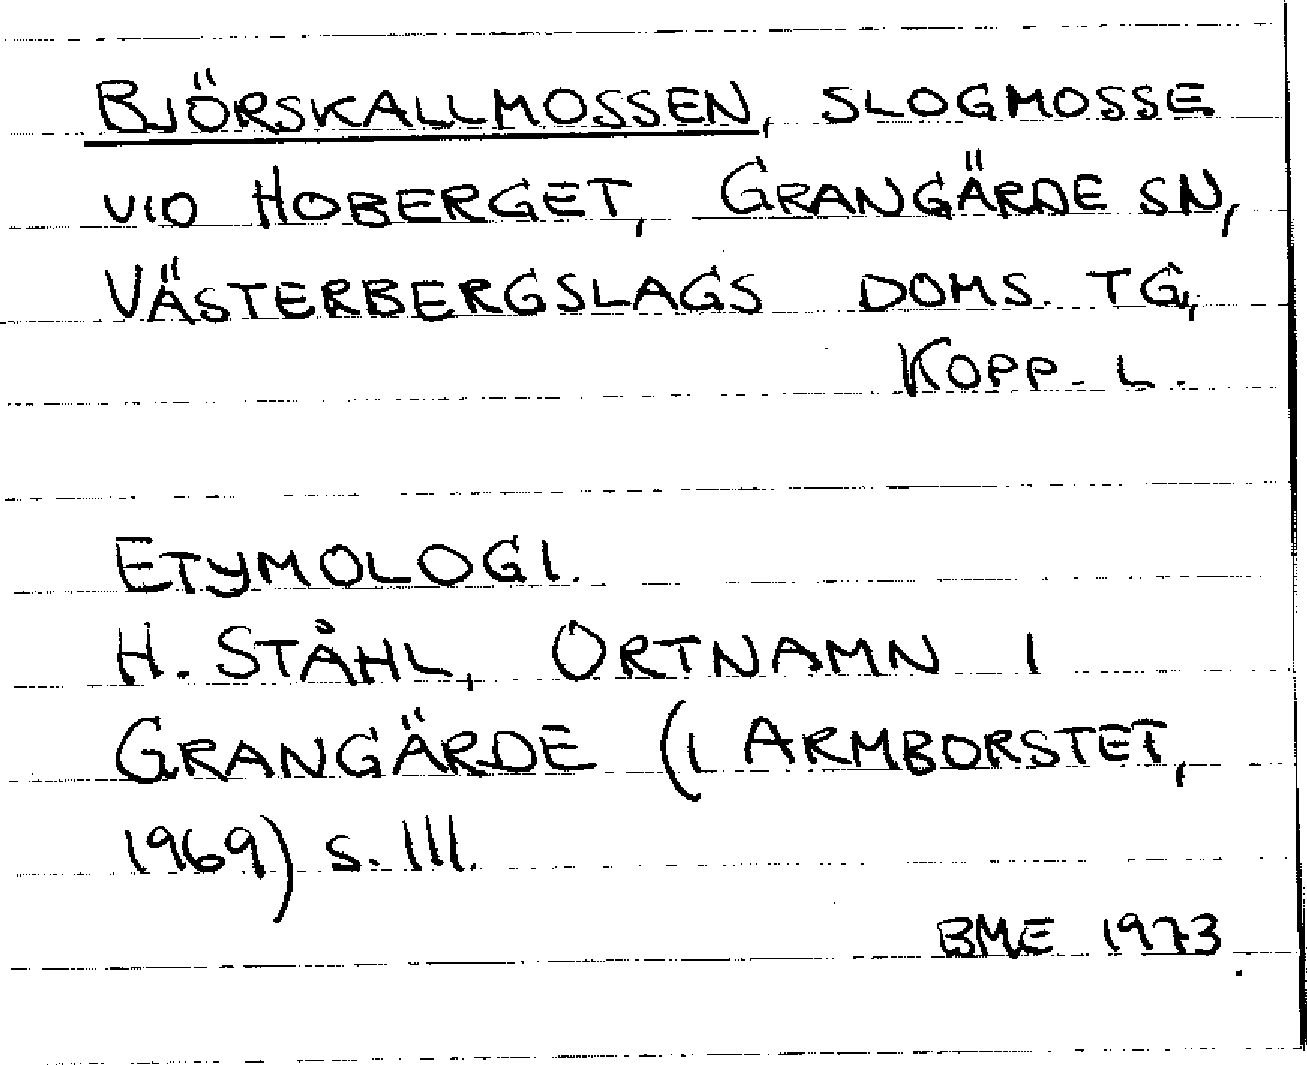 BJÖRSKALLMOSSEN, SLOGMOSSE
VID HOBERGET, GRANGÄRDE SN,
VÄSTERBERGSLAGS DOMS. TG,
KOPP. L.
ETYMOLOGI.
H. STÅHL, ORTNAMN I
GRANGÄRDE (I ARMBORSTET,
1969) S. 111.
BME 1973